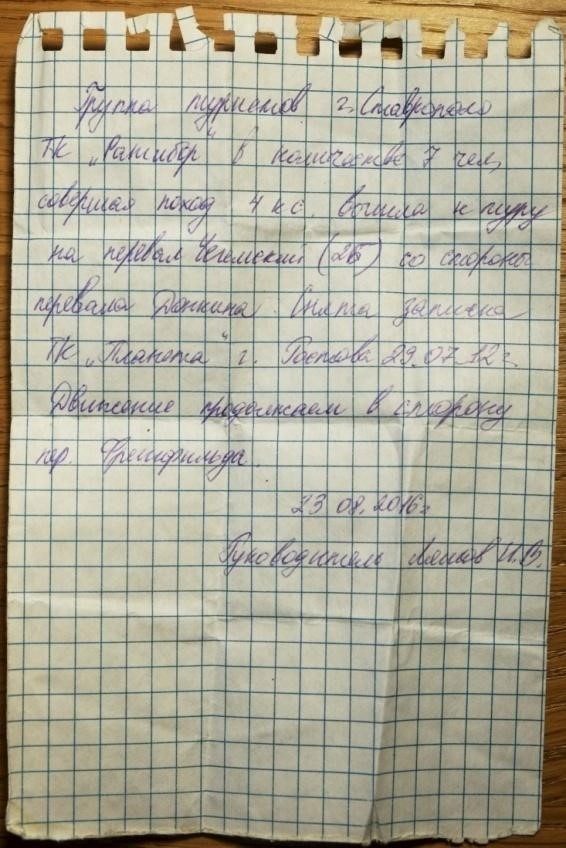 Группа туристов г. Ставрополо
ТК „Ратибор" в количестве 7 чел,
совершая поход 4 кс. вышла к туру
на перевал Чегемский (2Б) со стороны
перевала Донкина. Снята записка
ТК „Планета" г. Ростова 29.07.12 г.
Движение продолжаем в сторону
пер. Фрешфильда.
23 08. 2016 г.
Руководитель И.В.